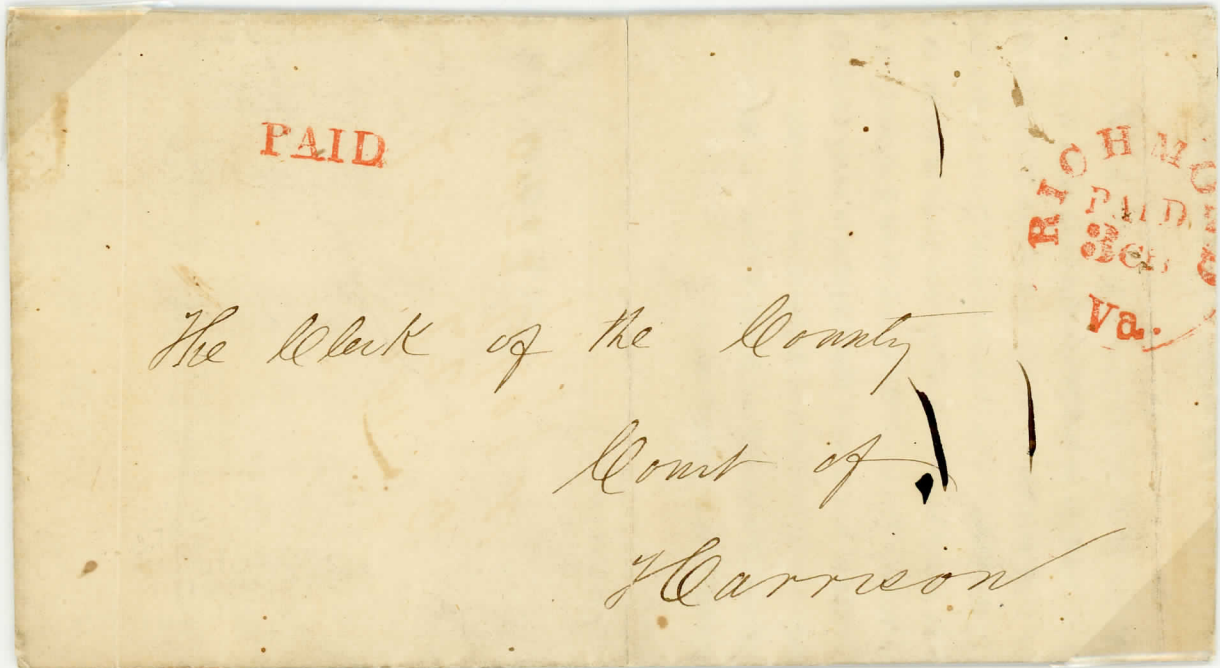 PAID
RICHMO
PAID
3 cts
Va.
The Clerk of the County
Court of
Harrison